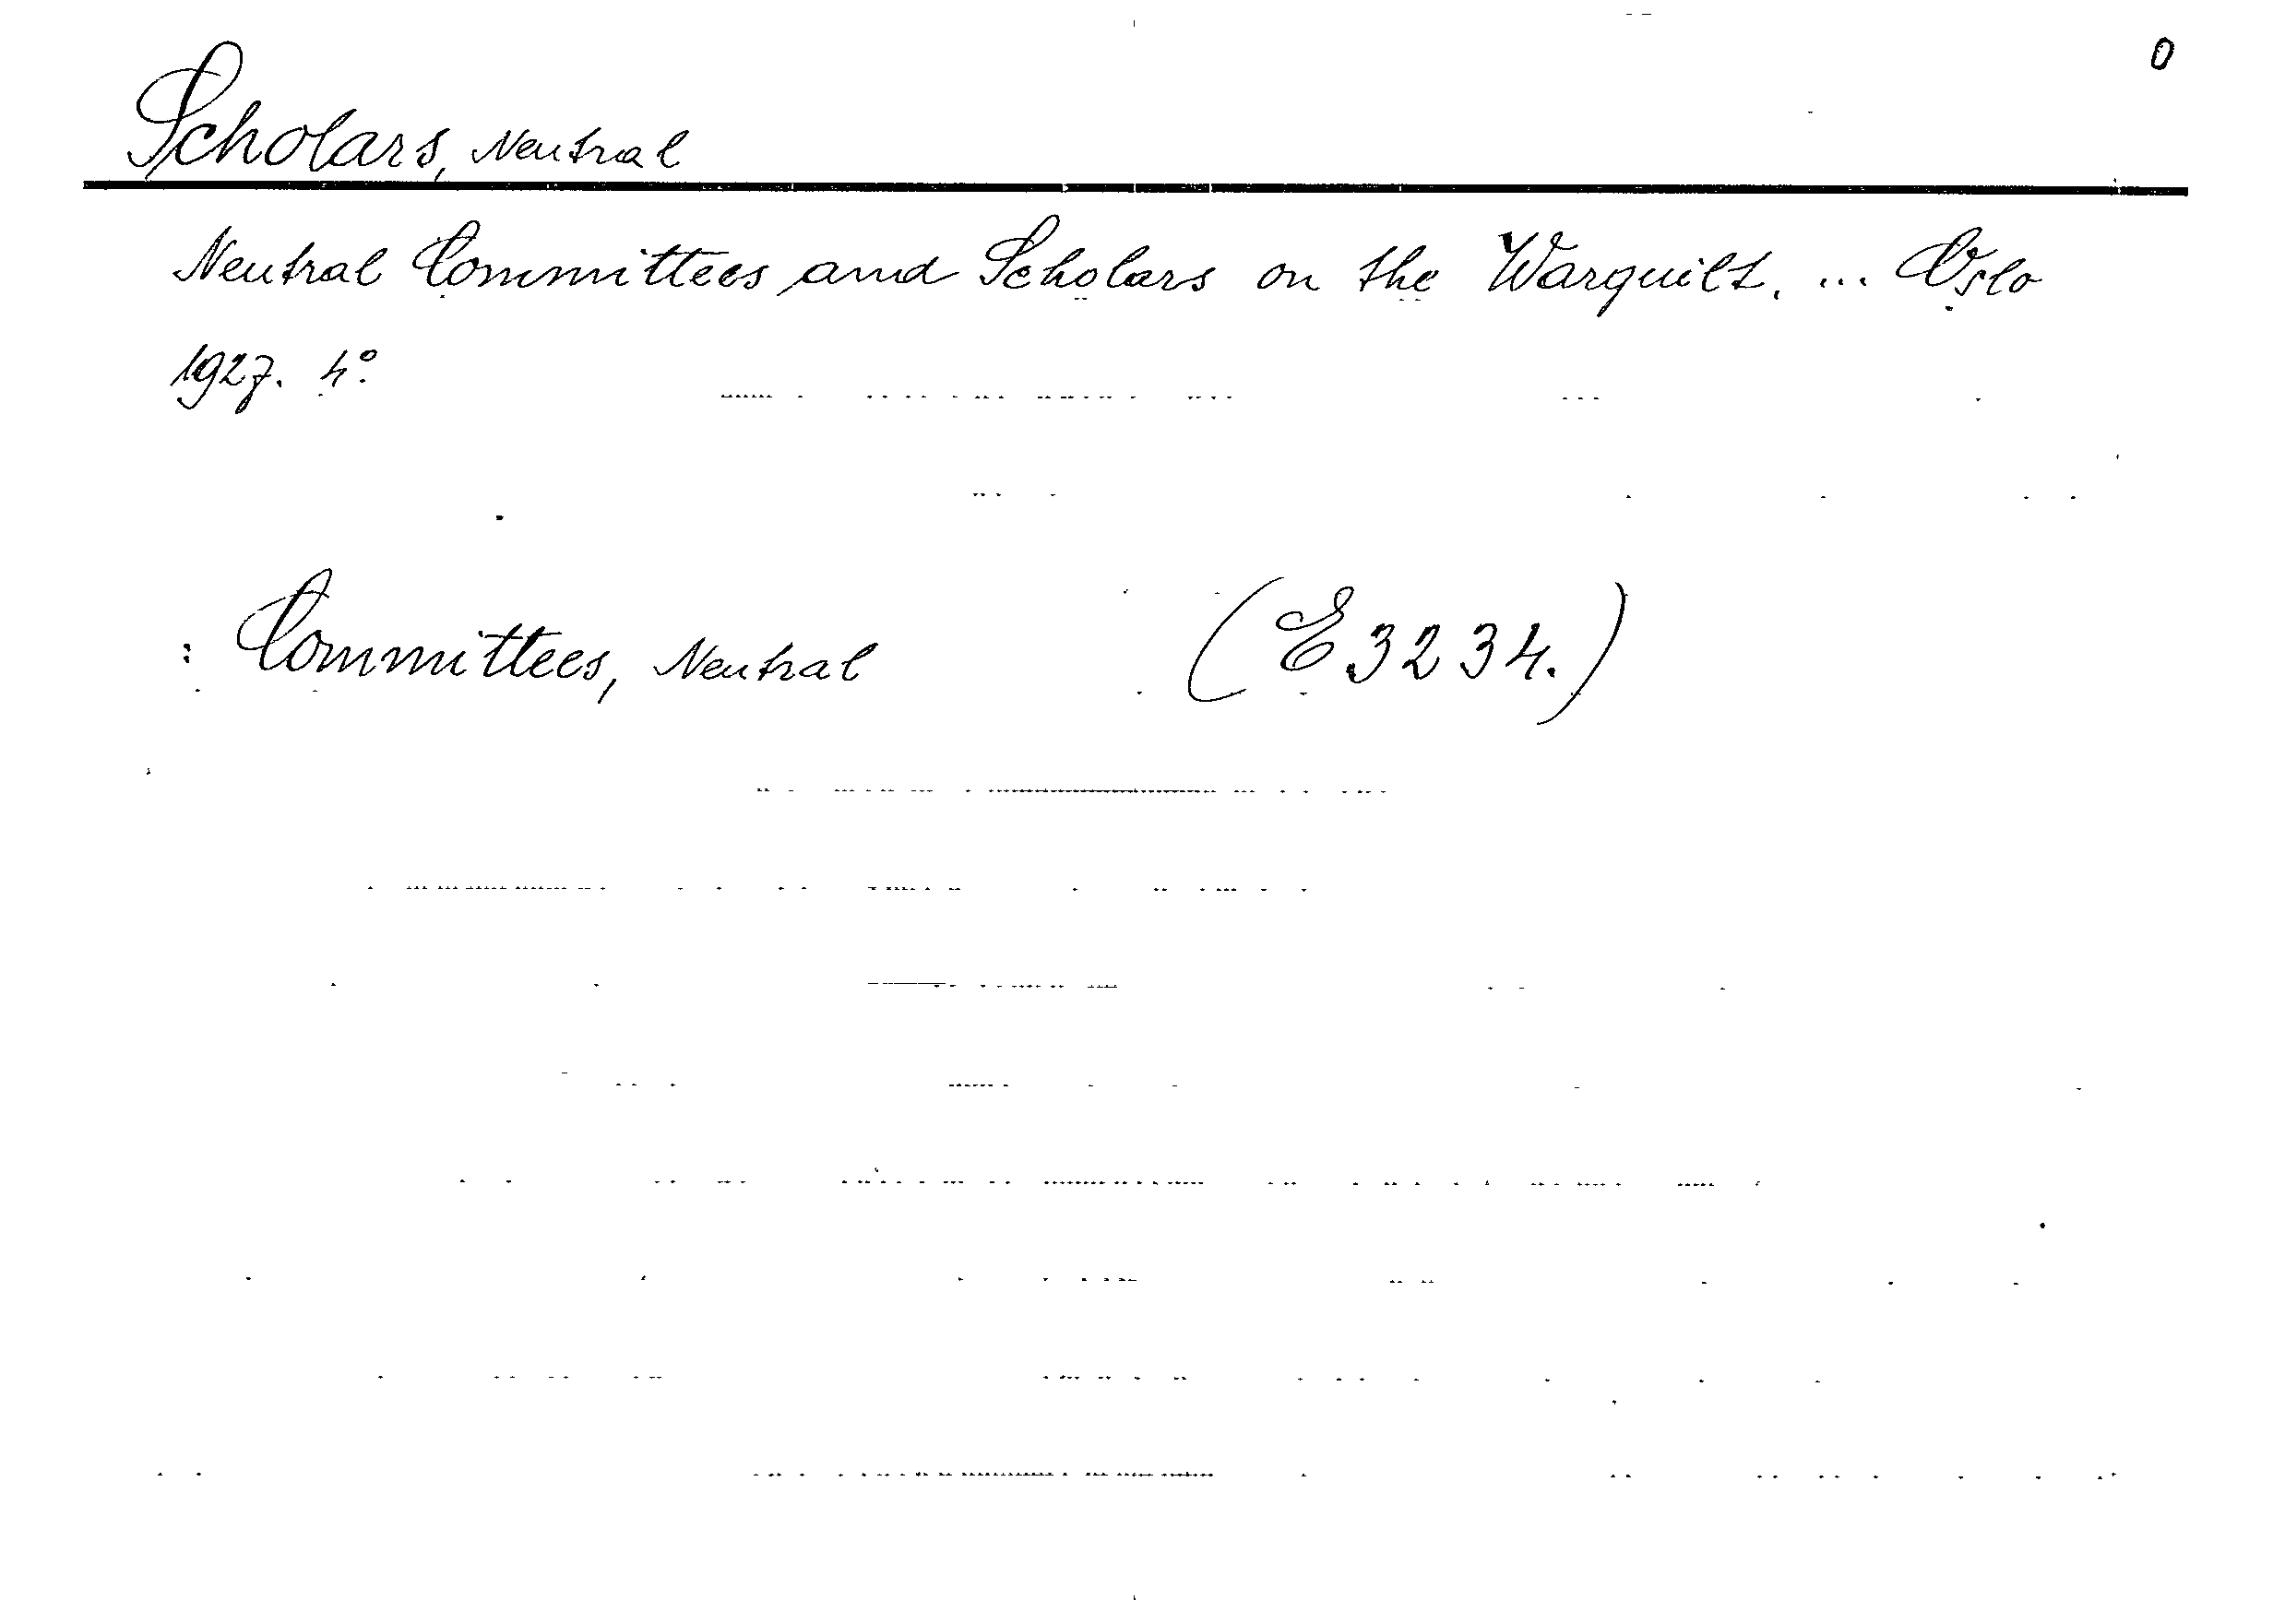 0
Scholars, Neutral
Neutral Committees and Scholars on the Warguilt. ... Oslo
1927. 4°.
: Committees, Neutral (E 3234.)